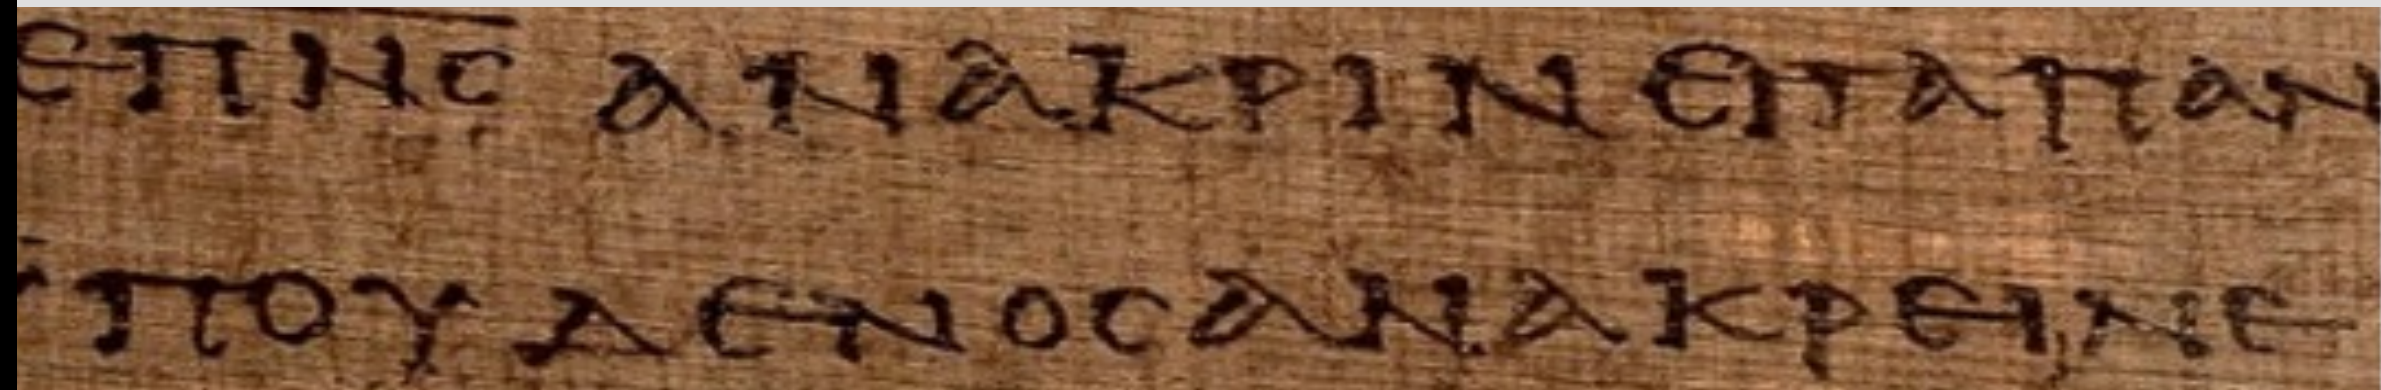 ΕΠΝϹ ΑΝΑΚΡΙΝΕΙΤΑΠΑΝ
ΠΟΥΔΕΝΟϹΑΝΑΚΡΕΙΝΕ